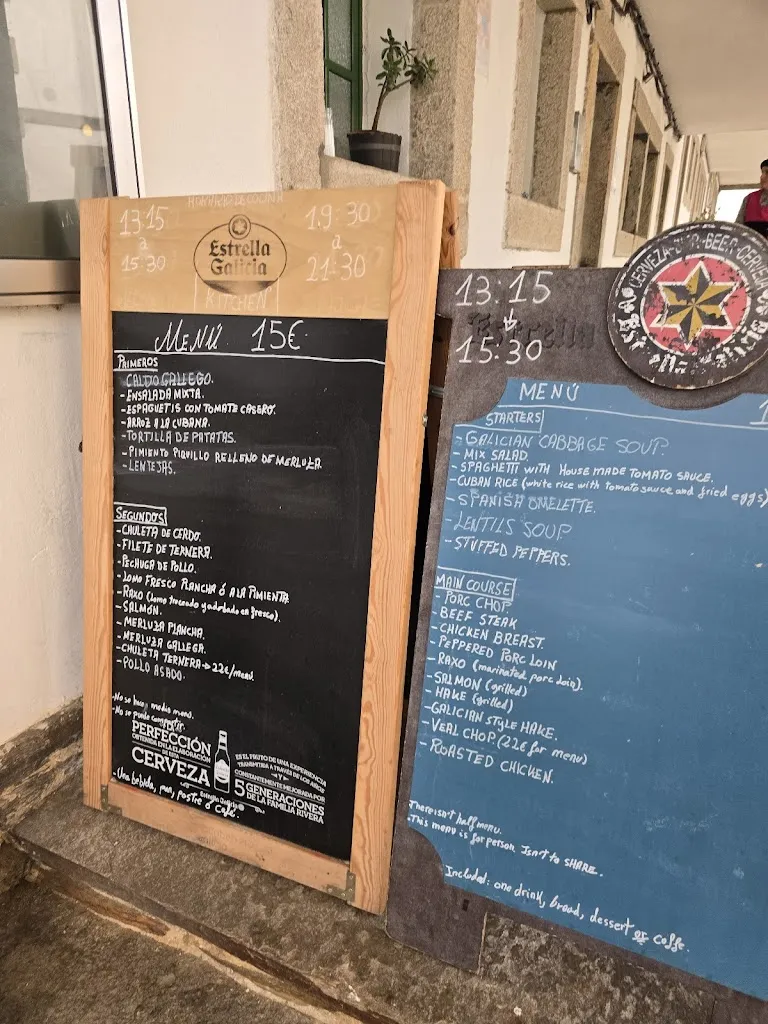 HORARIO DE COCINA
13:15
a
15:30
19:30
a
21:30
Estrella
Galicia
KITCHEN
MENÚ 15€
PRIMEROS
- CALDO GALLEGO.
- ENSALADA MIXTA.
- ESPAGUETIS CON TOMATE CASERO.
- ARROZ A LA CUBANA.
- TORTILLA DE PATATAS.
- PIMIENTO PIQUILLO RELLENO DE MERLUZA.
- LENTEJAS.
SEGUNDOS
- CHULETA DE CERDO.
- FILETE DE TERNERA.
- PECHUGA DE POLLO.
- LOMO FRESCO PLANCHA Ó A LA PIMIENTA
- RAXO (lomo troceado y adobado en fresco).
- SALMÓN.
- MERLUZA PLANCHA.
- MERLUZA GALLEGA.
- CHULETA TERNERA → 22€/menú.
- POLLO ASADO.
- No se hace medio menú.
- No se puede compartir.
LA
PERFECCIÓN
OBTENIDA EN LA ELABORACIÓN
DE ESTA
CERVEZA
ES EL FRUTO DE UNA EXPERIENCIA
TRANSMITIDA A TRAVÉS DE LOS AÑOS
Y
CONSTANTEMENTE MEJORADA POR
5 GENERACIONES
DE LA FAMILIA RIVERA
Estrella Galicia
- Una bebida, pan, postre ó café.
13:15
↓
15:30
Estrella
CERVEZA-BIER-BEER-CERVEJA
Estrella Galicia
MENÚ 1
STARTERS
- GALICIAN CABBAGE SOUP.
- MIX SALAD.
- SPAGHETTI WITH HOUSE MADE TOMATO SAUCE.
- CUBAN RICE (white rice with tomato sauce and fried eggs)
- SPANISH OMELETTE.
- LENTILS SOUP
- STUFFED PEPPERS.
MAIN COURSE
- PORC CHOP
- BEEF STEAK
- CHICKEN BREAST.
- PEPPERED PORC LOIN
- RAXO (marinated porc loin).
- SALMON (grilled)
- HAKE (grilled)
- GALICIAN STYLE HAKE.
- VEAL CHOP (22€ for menu)
- ROASTED CHICKEN.
- There isn't half menu.
- This menu is for person. Isn't to SHARE.
Included: one drink, bread, dessert or coffe.